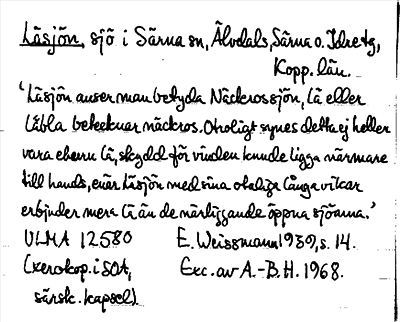 Läsjön, sjö i Särna sn, Älvdals, Särna o. Idre tg,
Kopp. län.
"Läsjön anser man betyda Näckrossjön, lä eller
läbla betecknar näckros. Otroligt synes detta ej heller
vara ehuru lä, skydd för vinden kunde ligga närmare
till hands, enär Läsjön med sina otaliga långa vikar
erbjuder mera lä än de närliggande öppna sjöarna."
ULMA 12580 E. Weissmann 1939, s. 14.
(xerokop. i SOA, Exc. av A.-B.H. 1968.
särsk. kapsel).